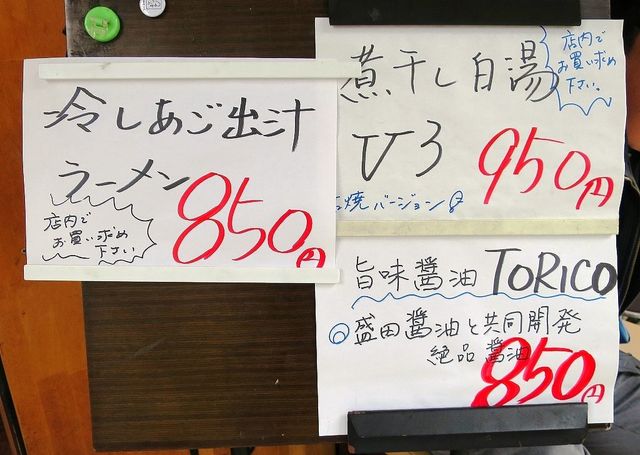 冷しあご出汁
ラーメン
850円
店内で
お買い求め
下さい
煮干し白湯
V3
950円
店内で
お買い求め
下さい。
焼バージョン8
旨味醤油 TORICO
◎盛田醤油と共同開発
絶品醤油
850円